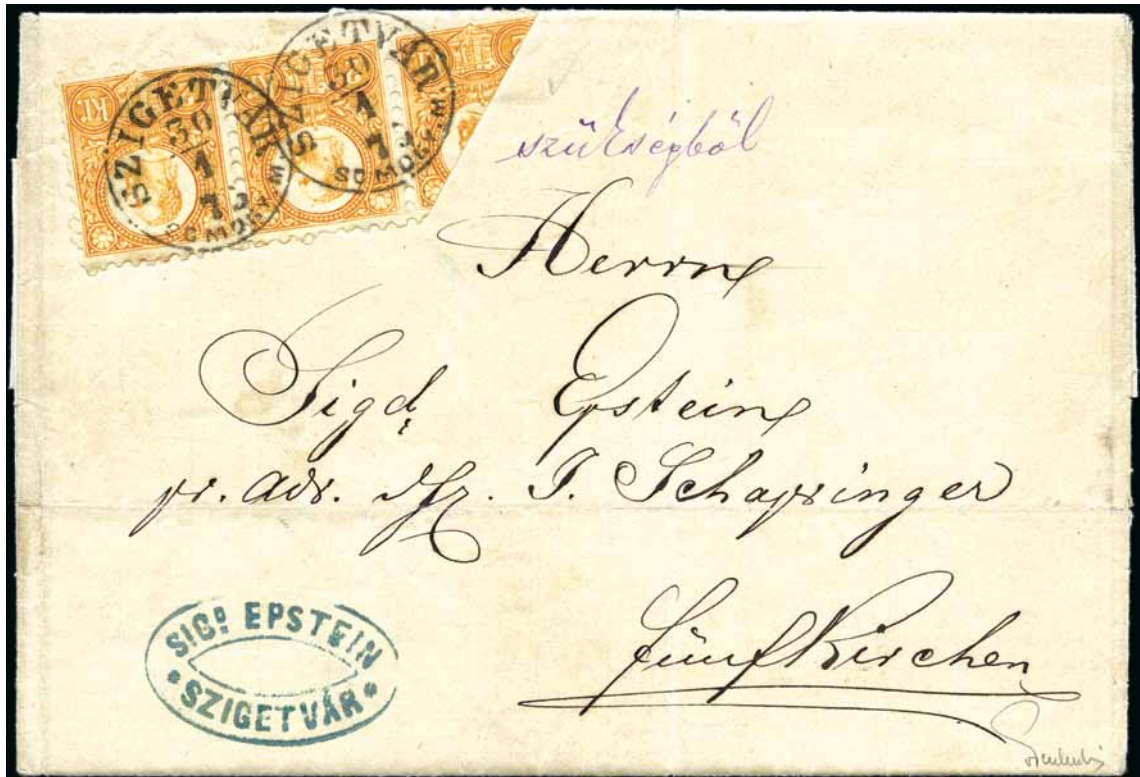 SZIGETVÁR
30
1
73
SOMOGY M.
SZIGETVÁR
30
1
73
SOMOGY M.
KR.
szükségből
Herrn
Sigd Epstein
pr. Adr. J. Schapringer
Fünfkirchen
SIGD EPSTEIN
* SZIGETVÁR *